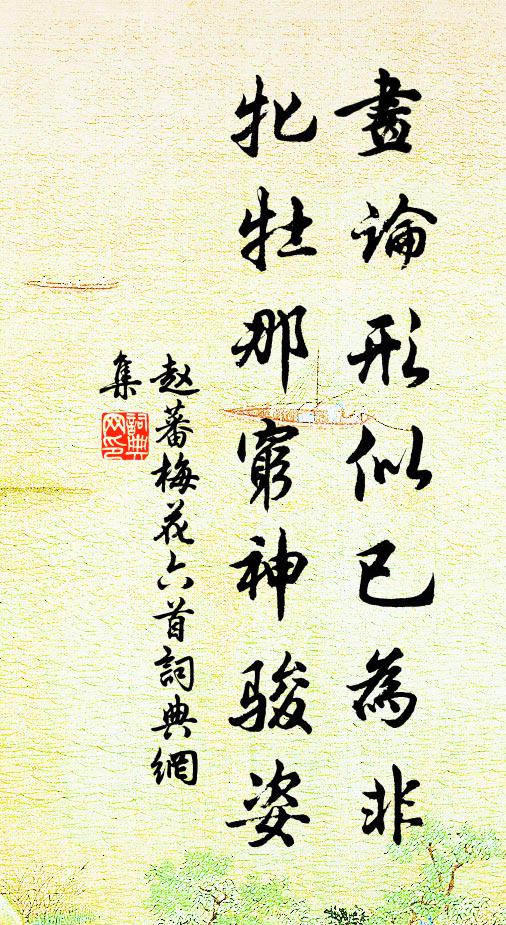 畫論形似已為非
牝牡那窮神骏姿
赵蕃梅花六首詞典網
集
詞典
网印